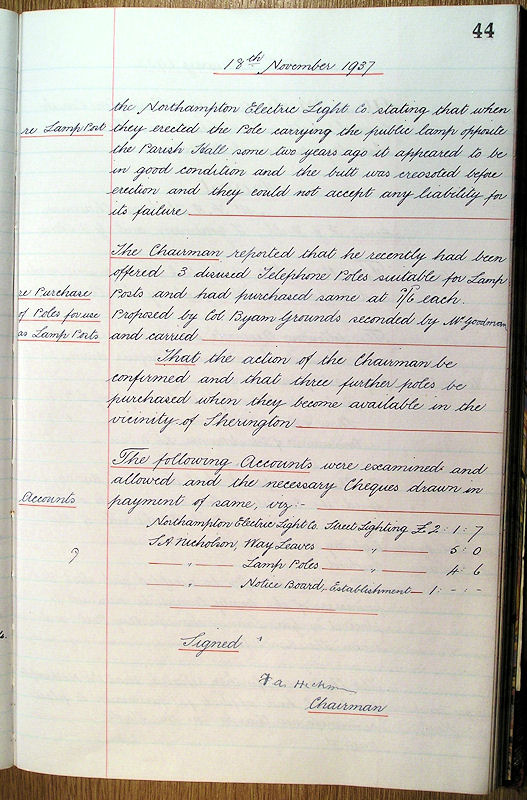 44
18th November 1937
the Northampton Electric Light Co. stating that when
re Lamp Post they erected the Pole carrying the public lamp opposite
the Parish Hall some two years ago it appeared to be
in good condition and the butt was creosoted before
erection and they could not accept any liability for
its failure
The Chairman reported that he recently had been
offered 3 disused Telephone Poles suitable for Lamp
re Purchase Posts and had purchased same at 1/6 each.
of Poles for use Proposed by Col Byam Grounds seconded by Mr Goodman
as Lamp Posts and carried
That the action of the Chairman be
confirmed and that three further poles be
purchased when they become available in the
vicinity of Sherington
The following Accounts were examined and
allowed and the necessary Cheques drawn in
Accounts payment of same, viz:-
Northampton Electric Light Co. Street Lighting £2 : 1 : 7
S.A Nicholson, Way Leaves " 5 : 0
? " Lamp Poles " 4 : 6
" Notice Board, Establishment 1 : - : -
Signed
A. Hickm
Chairman